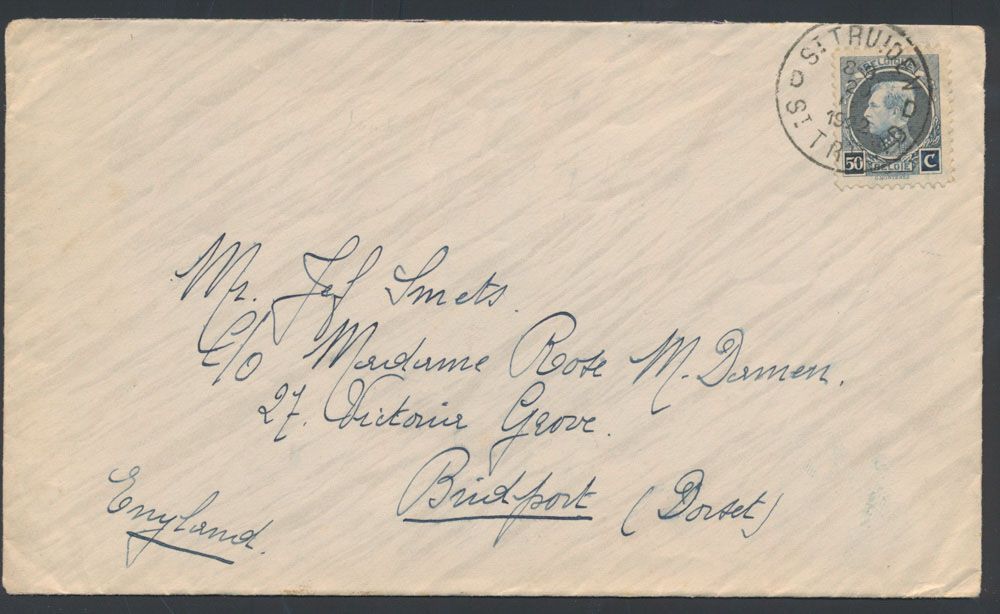 St TRUIDEN
1922
St TR
BELGIQUE
50 BELGIË C
Mr. Jef Smets.
C/o Madame Rose M. Damen.
27. Victoria Grove.
Bridport (Dorset)
England.